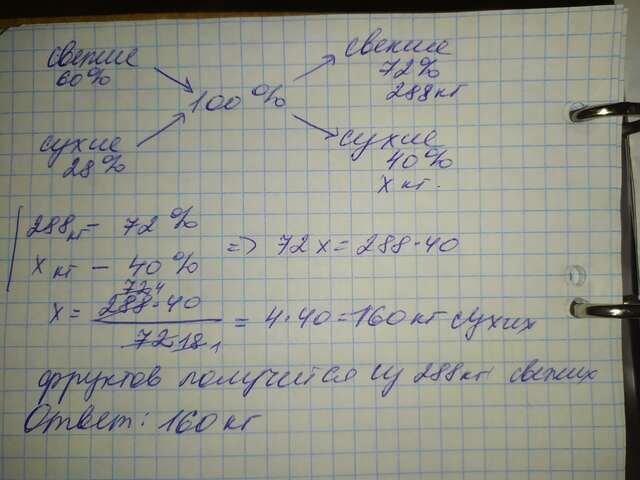 свежие
60%
сухие
28%
100%
свежие
72%
288кг
сухие
40%
х кг.
288кг – 72%
х кг – 40%
=> 72х = 288·40
х = 288·40 / 72 = 4·40 = 160 кг сухих
72 4
18 1
фруктов получится из 288кг свежих
Ответ: 160 кг